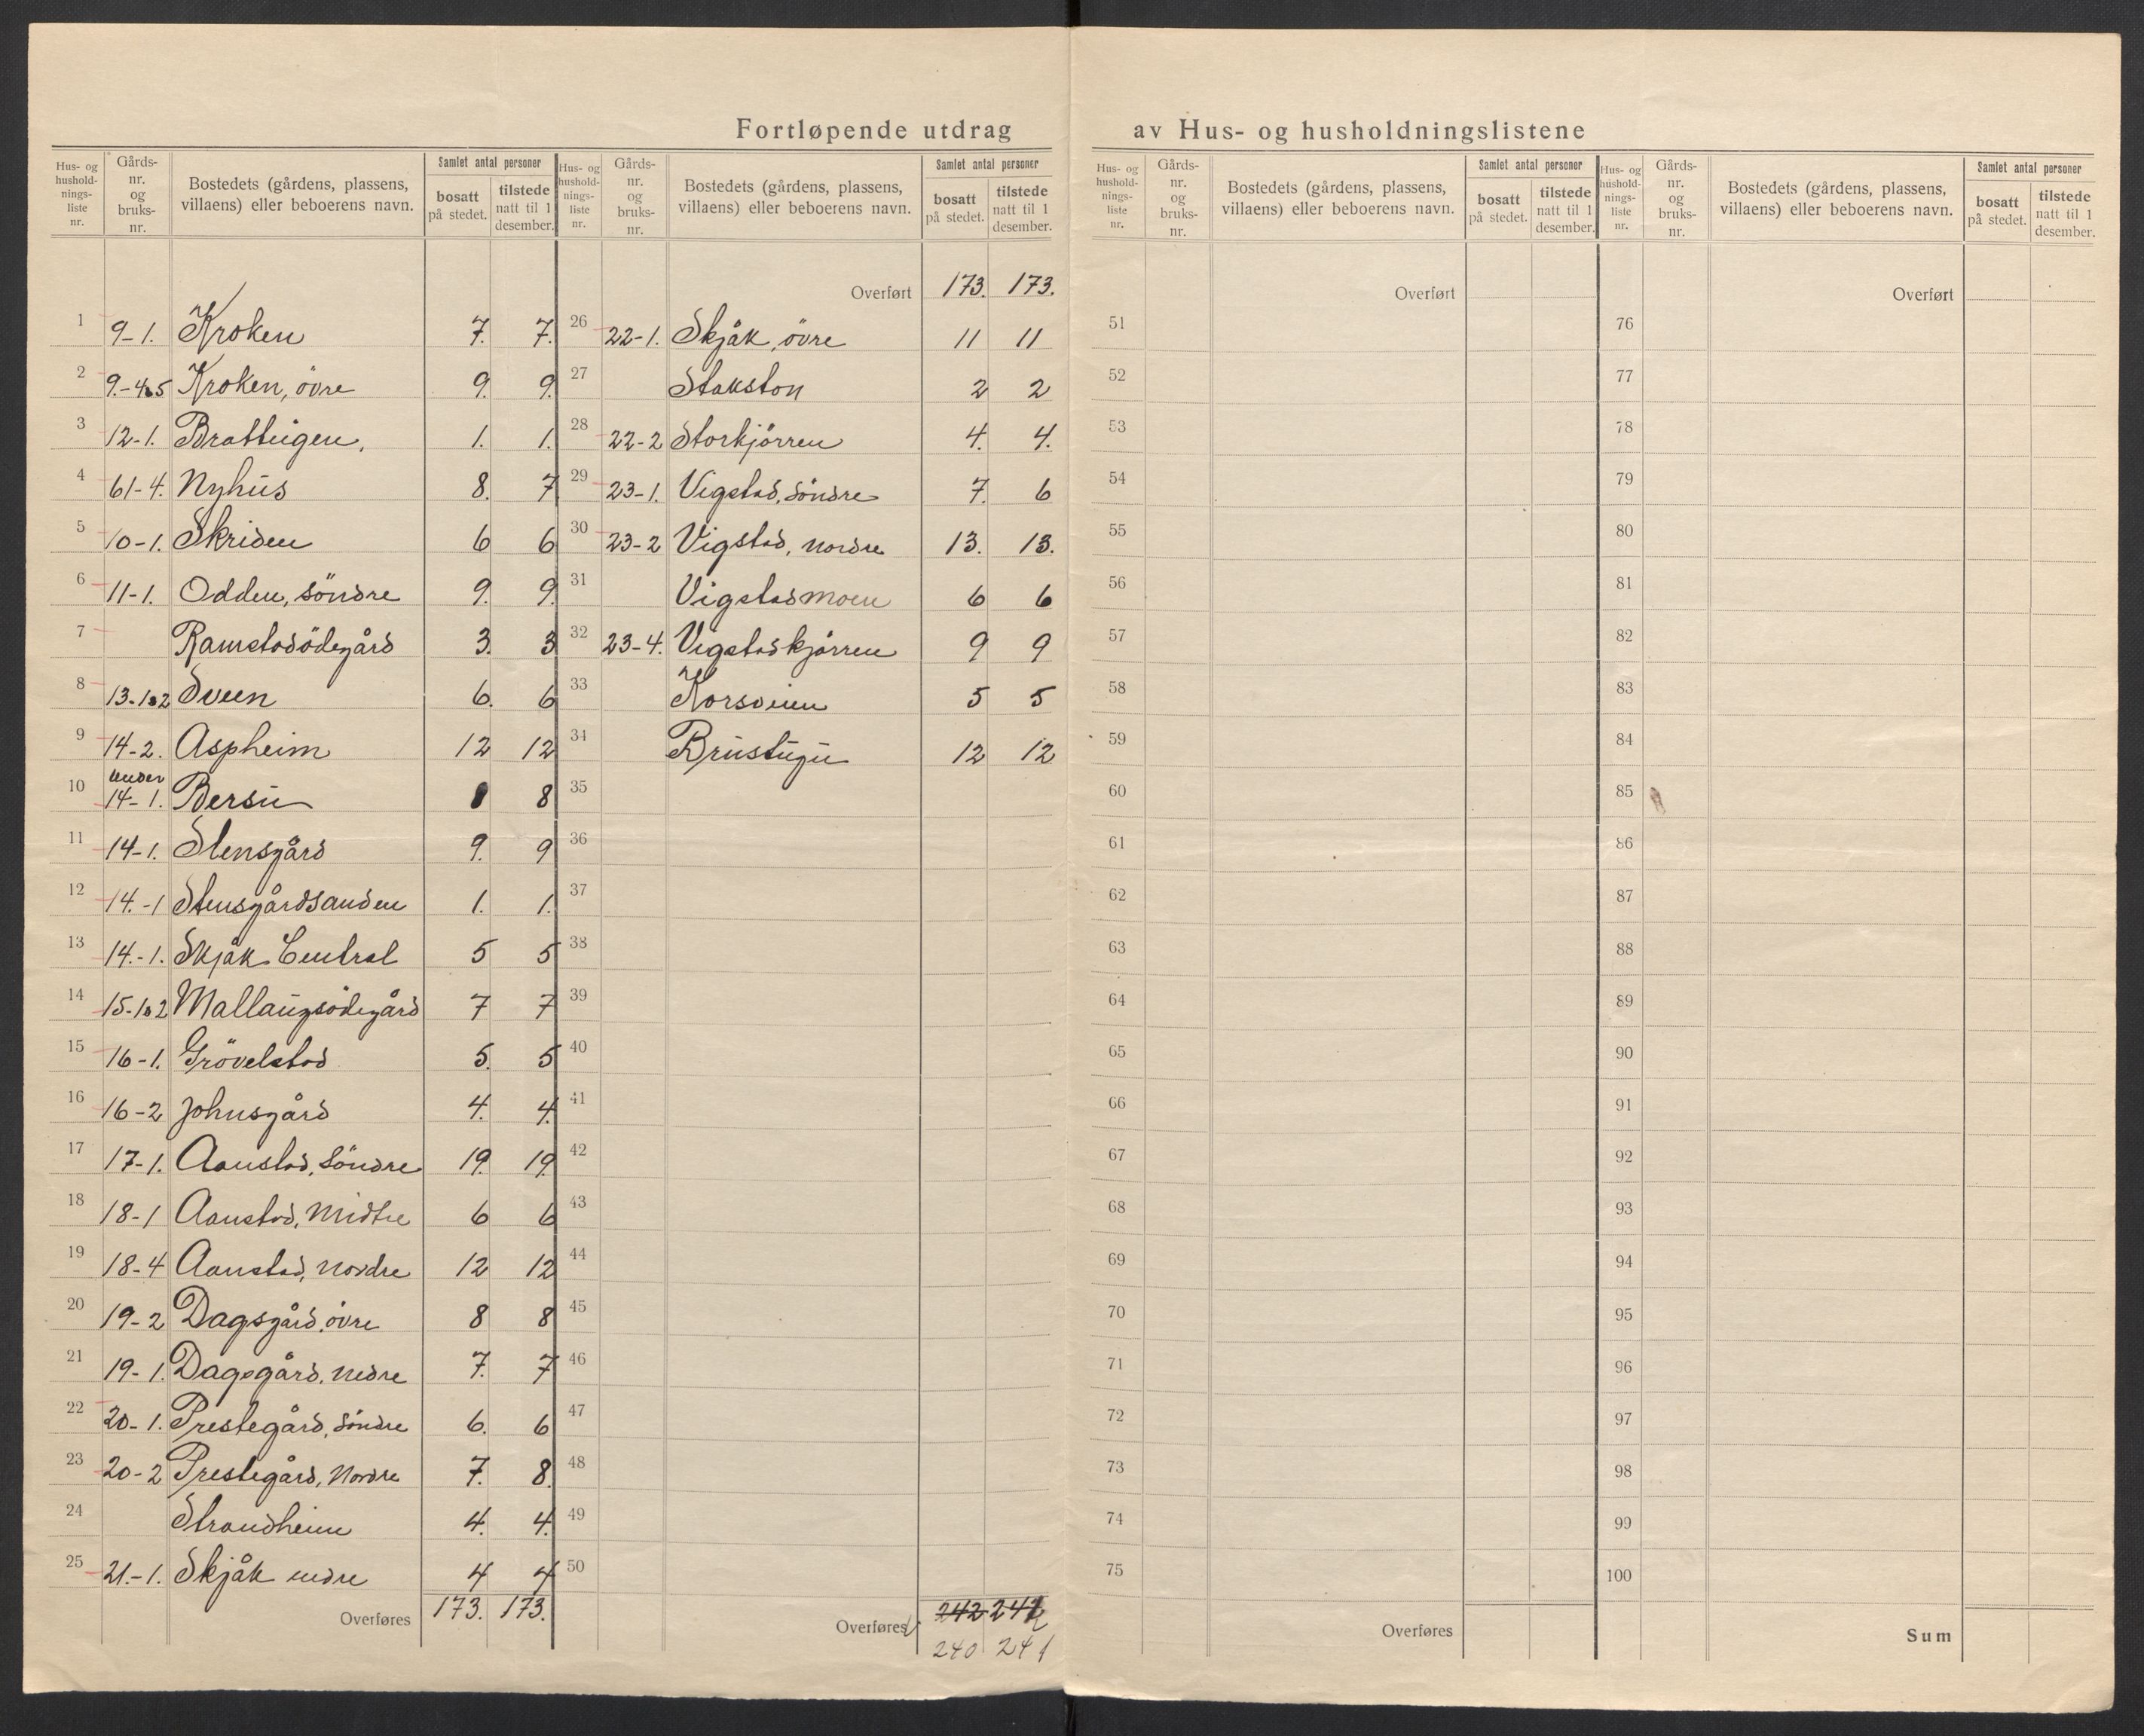 Fortløpende utdrag av Hus- og husholdningslistene
Hus- og hushold-nings-liste nr. | Gårds-nr. og bruks-nr. | Bostedets (gårdens, plassens, villaens) eller beboerens navn. | Samlet antal personer | bosatt på stedet. | tilstede natt til 1 desember.
1 9-1. Kroken 7. 7.
2 9.-4&5 Kroken, övre 9. 9.
3 12-1. Bratteigen, 1. 1.
4 61-4. Nyhus 8. 7
5 10-1. Skriden 6 6
6 11-1. Odden, söndre 9. 9.
7 Ramstadödegård 3. 3
8 13-1&2 Sveen 6. 6
9 14-2. Aspheim 12 12
10 under 14-1. Bersu 8 8
11 14-1. Stensgård 9. 9
12 14.-1 Stensgårdsanden 1. 1.
13 14.-1. Skjåk Central 5 5
14 15-1&2 Mallaugsödegård 7 7
15 16-1. Grövelstad 5. 5
16 16-2 Johnsgård 4. 4.
17 17-1. Aanstad, söndre 19. 19.
18 18-1 Aanstad, midtre 6 6
19 18-4 Aanstad, nordre 12 12
20 19-2 Dagsgård, övre 8 8
21 19-1. Dagsgård, nedre 7. 7
22 20-1. Prestegård, söndre 6. 6
23 20-2 Prestegård, nordre 7. 8.
24 Strandheim 4. 4.
25 21.-1. Skjåk nedre 4 4
Overføres 173. 173.
Hus- og hushold-nings-liste nr. | Gårds-nr. og bruks-nr. | Bostedets (gårdens, plassens, villaens) eller beboerens navn. | Samlet antal personer | bosatt på stedet. | tilstede natt til 1 desember.
Overført 173. 173.
26 22-1. Skjåk, övre 11 11
27 Stakston 2 2
28 22-2 Storkjörren 4. 4.
29 23-1. Vigstad, söndre 7. 6
30 23-2 Vigstad, nordre 13. 13.
31 Vigstadmoen 6 6
32 23-4. Vigstadkjörren 9 9
33 Korsveien 5 5
34 Brustugu 12 12
35
36
37
38
39
40
41
42
43
44
45
46
47
48
49
50
Overføres 242 242
240 241
Hus- og hushold-nings-liste nr. | Gårds-nr. og bruks-nr. | Bostedets (gårdens, plassens, villaens) eller beboerens navn. | Samlet antal personer | bosatt på stedet. | tilstede natt til 1 desember.
Overført
51
52
53
54
55
56
57
58
59
60
61
62
63
64
65
66
67
68
69
70
71
72
73
74
75
Overføres
Hus- og hushold-nings-liste nr. | Gårds-nr. og bruks-nr. | Bostedets (gårdens, plassens, villaens) eller beboerens navn. | Samlet antal personer | bosatt på stedet. | tilstede natt til 1 desember.
Overført
76
77
78
79
80
81
82
83
84
85
86
87
88
89
90
91
92
93
94
95
96
97
98
99
100
Sum